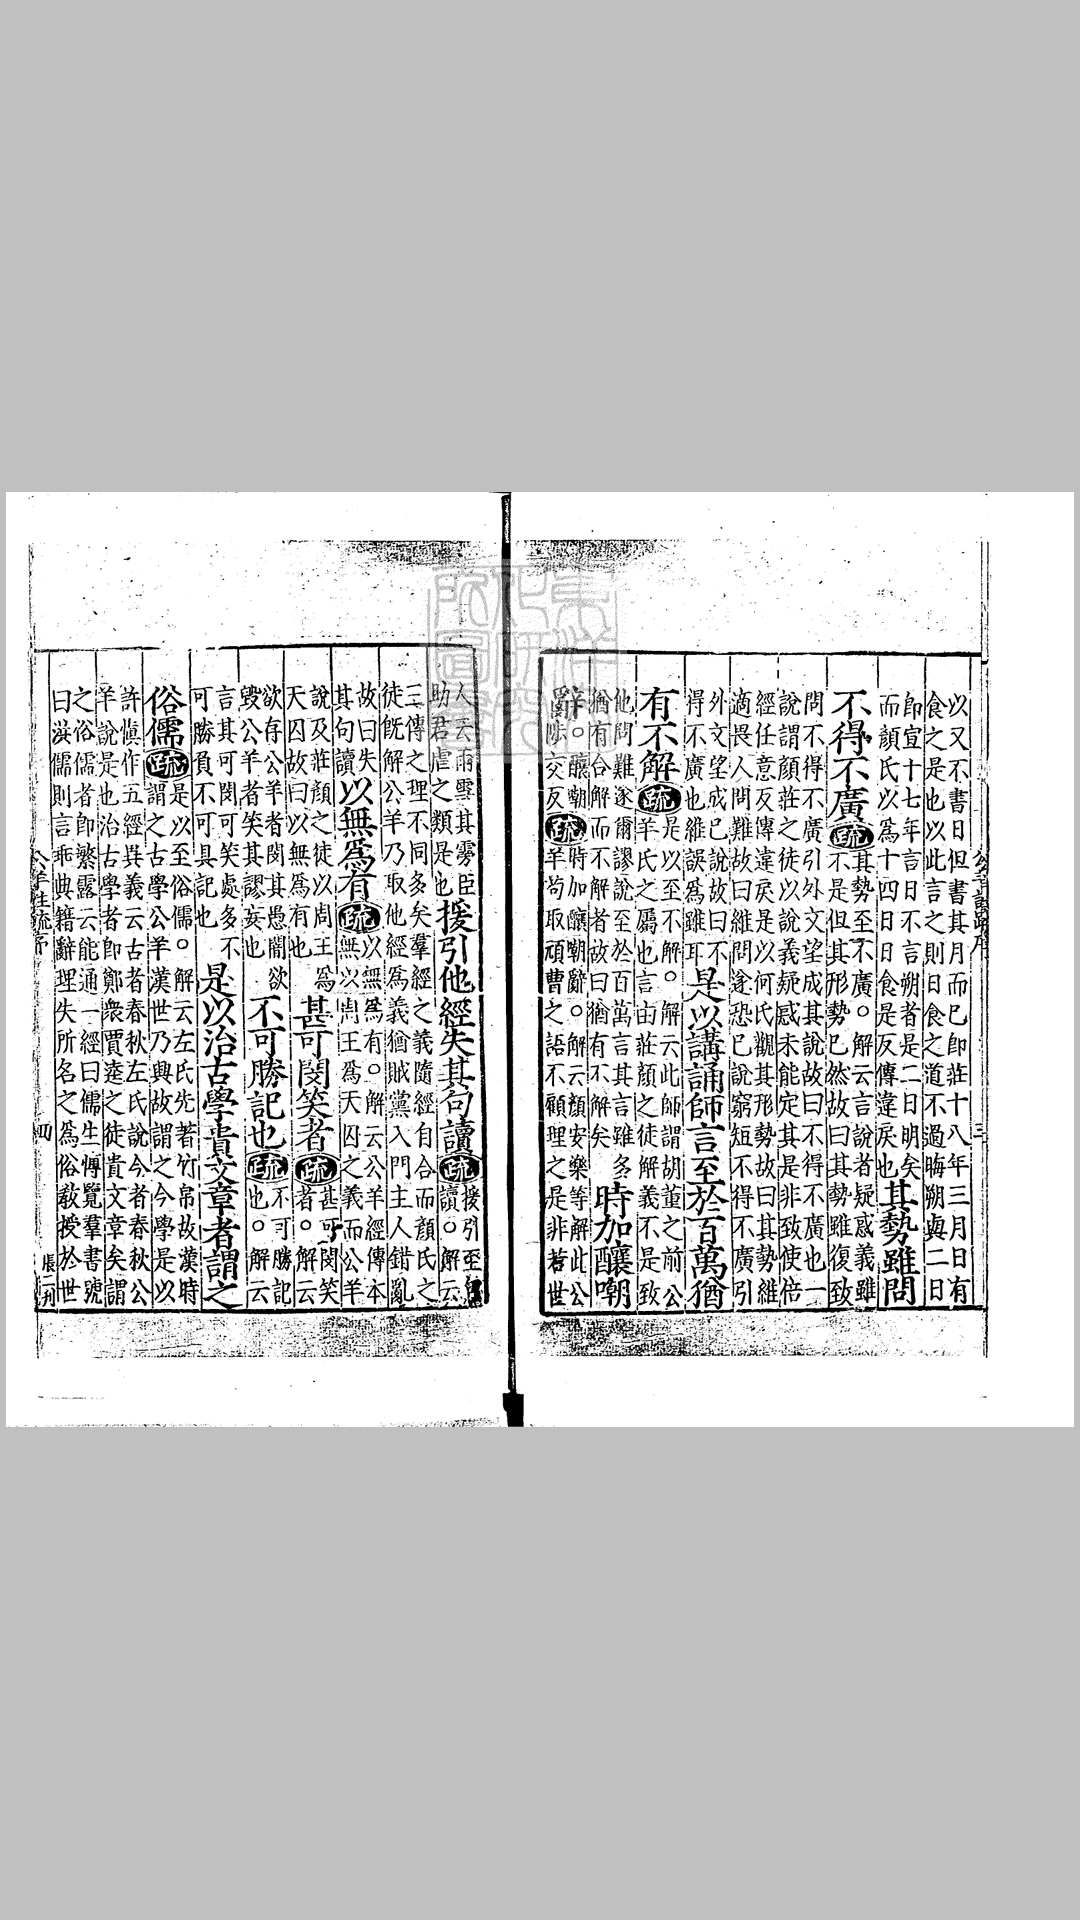 以又不書日但書其月而已即莊十八年三月日有
食之是也以此言之則日食之道不過晦朔與二日
即宣十七年言日不言朔者是二日明矣
而顏氏以爲十四日日食是反傳違戾也
其勢雖問
不得不廣疏
其勢至不廣。解云言說者疑惑義雖
不是但其形勢已然故曰其勢雖復致
問不得不廣引外文望成其說故曰不得不廣也一
說謂顏莊之徒以說義疑惑未能定其是非致使倍
經任意反傳違戾是以何氏觀其形勢故曰其勢維
適畏人問難故曰維問遂恐已說窮短不得不廣引
外文望成已說故曰不
得不廣也維誤爲雖耳
是以講誦師言至於百萬猶
有不解疏
是以至不解。解云此師謂胡董之前公
羊氏之屬也言由莊顏之徒解義不是致
他問難遂爾謬說至於百萬言其言雖多
猶有合解而不解者故曰猶有不解矣
時加釀嘲
辭。釀嘲
陟交反
疏
時加釀嘲辭。解云顏安樂等解此公
羊苟取頑曹之語不顧理之是非若世
人云雨雪其雱臣
助君虐之類是也
援引他經失其句讀疏
援引至句
讀。解云
三傳之理不同多矣羣經之義隨經自合而顏氏之
徒既解公羊乃取他經爲義猶賊黨入門主人錯亂
故曰失
其句讀
以無爲有疏
以無爲有。解云公羊經傳本
無以周王爲天囚之義而公羊
說及莊顏之徒以周王爲
天囚故曰以無爲有也
甚可閔笑者疏
甚可閔笑
者。解云
欲存公羊者閔其愚闇欲
毀公羊者笑其謬妄也
不可勝記也疏
不可勝記
也。解云
言其可閔可笑處多不
可勝負不可具記也
是以治古學貴文章者謂之
俗儒疏
是以至俗儒。解云左氏先著竹帛故漢時
謂之古學公羊漢世乃興故謂之今學是以
許慎作五經異義云古者春秋左氏說今者春秋公
羊說是也治古學者即鄭衆賈逵之徒貴文章矣謂
之俗儒者即繁露云能通一經曰儒生博覽羣書號
曰洪儒則言乖典籍辭理失所名之爲俗教授於世
公羊註疏序 四 張二刋